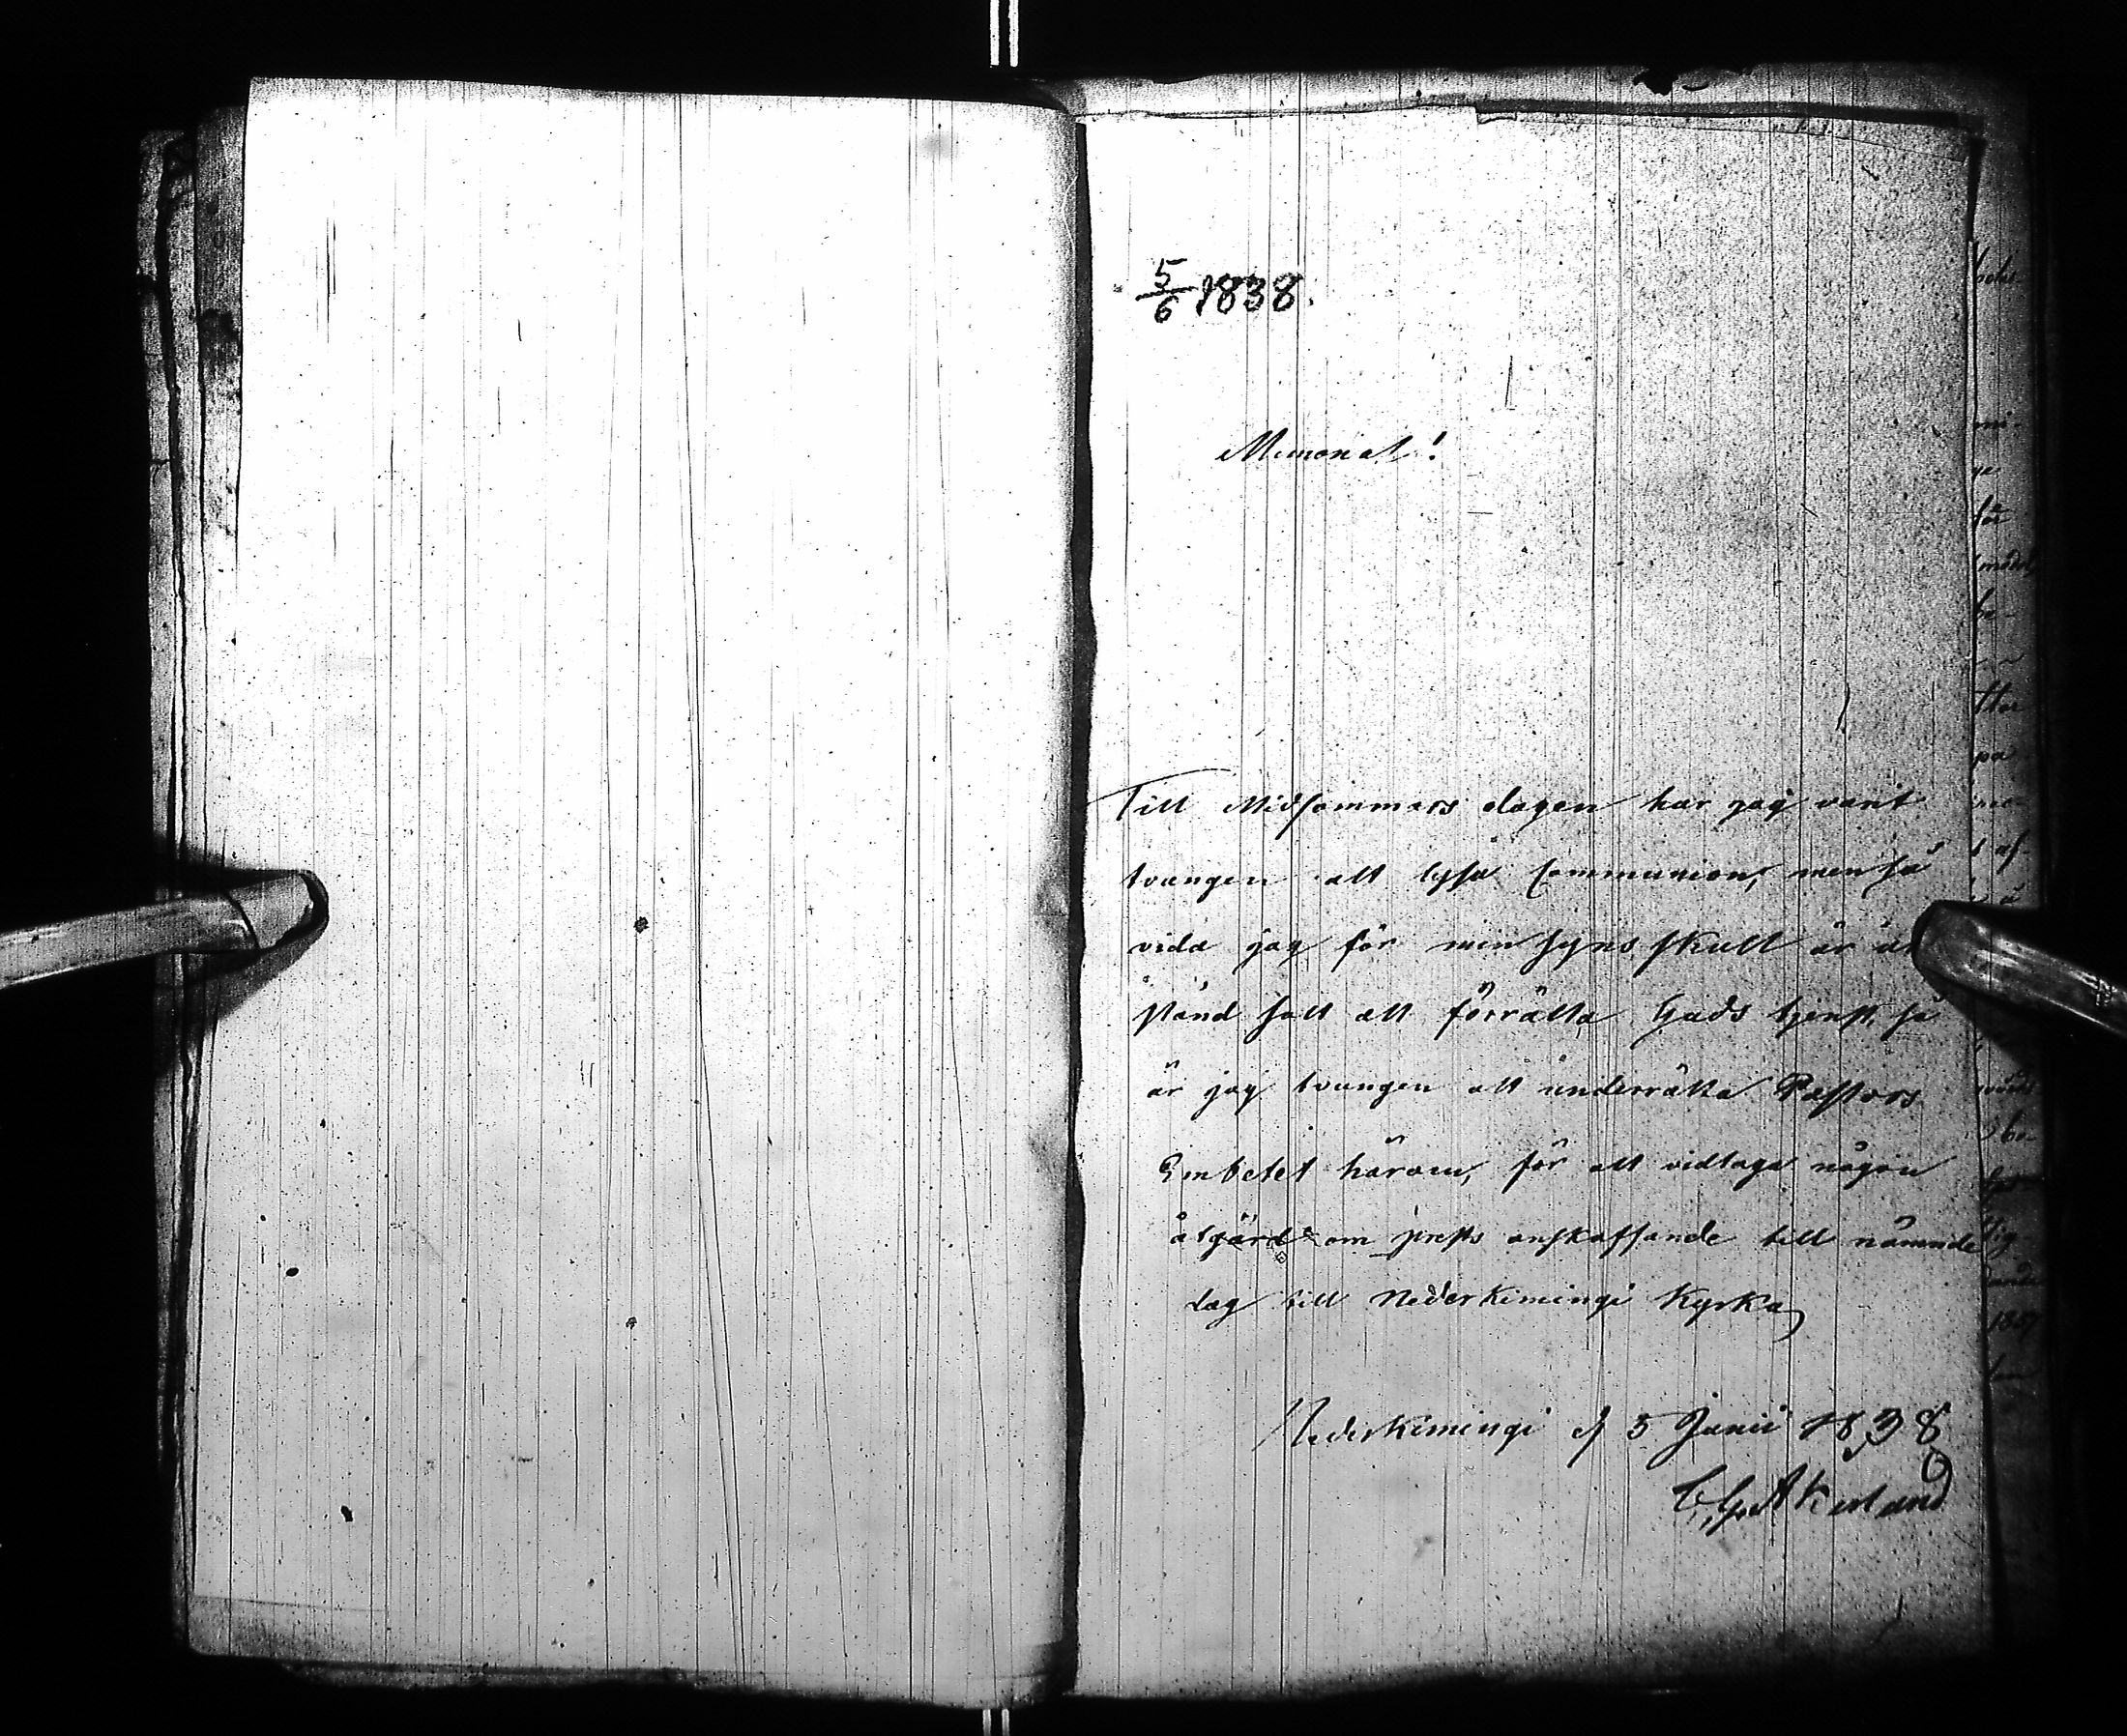 5/6 1838.
Memorial!
Till Midsommars dagen har jag varit
tvungen att lysa Communion, men så
vida jag för min syns skull är
stånd satt att förrätta Guds tjenst, så
är jag tvungen att underrätta Pastors
Embetet härom, för att vidtaga någon
åtgärd om prests anskaffande till nämnde
dag till Nederkimingi Kyrka
Nederkimingi d 5 Junii 1838
C.G. Åkerlund